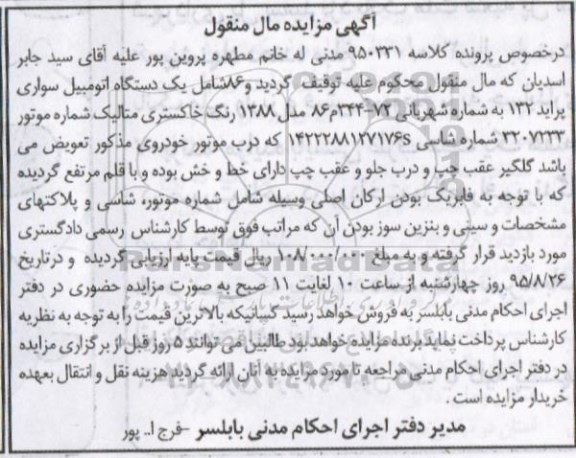 آگهی مزایده مال منقول
درخصوص پرونده کلاسه ۹۵۰۳۳۱ مدنی له خانم مطهره پروین پور علیه آقای سید جابر
اسدیان که مال منقول محکوم علیه توقیف گردید و۸۶شامل یک دستگاه اتومبیل سواری
پراید ۱۳۲ به شماره شهربانی ۷۲–۳۴۴م۸۶ مدل ۱۳۸۸ رنگ خاکستری متالیک شماره موتور
۳۲۰۷۲۳۳ شماره شاسی s۱۴۲۲۲۸۸۱۲۷۱۷۶ که درب موتور خودروی مذکور تعویض می
باشد گلگیر عقب چپ و درب جلو و عقب چپ دارای خط و خش بوده و با قلم مرتفع گردیده
که با توجه به فابریک بودن ارکان اصلی وسیله شامل شماره موتور، شاسی و پلاکتهای
مشخصات و سینی و بنزین سوز بودن آن که مراتب فوق توسط کارشناس رسمی دادگستری
مورد بازدید قرار گرفته و به مبلغ ۱۰۸/۰۰۰/۰۰۰ ریال قیمت پایه ارزیابی گردیده و درتاریخ
۹۵/۸/۲۶ روز چهارشنبه از ساعت ۱۰ لغایت ۱۱ صبح به صورت مزایده حضوری در دفتر
اجرای احکام مدنی بابلسر به فروش خواهد رسید کسانیکه بالاترین قیمت را به توجه به نظریه
کارشناس پرداخت نماید برنده مزایده خواهد بود طالبین می توانند ۵ روز قبل از برگزاری مزایده
در دفتر اجرای احکام مدنی مراجعه تا مورد مزایده به آنان ارائه گردید هزینه نقل و انتقال بعهده
خریدار مزایده است .
مدیر دفتر اجرای احکام مدنی بابلسر –فرج ا.. پور
ParsNamadData